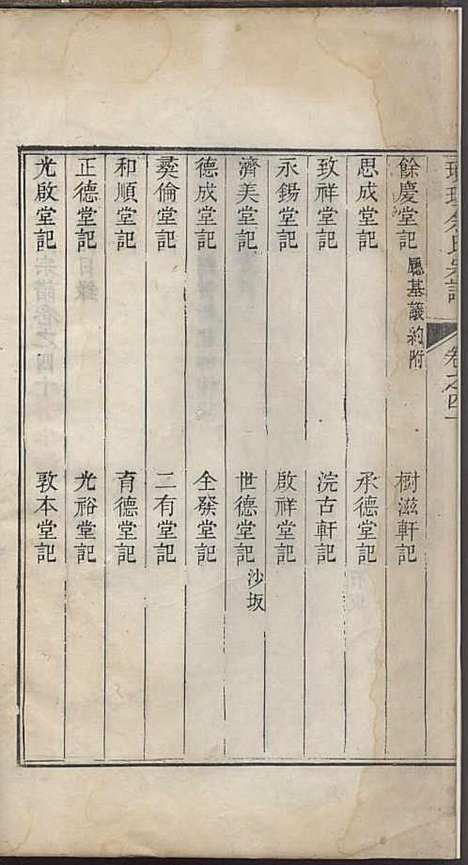 余氏宗譜
卷之四十
餘慶堂記 廳基議約附
樹滋軒記
思成堂記
承德堂記
致祥堂記
浣古軒記
永錫堂記
啟祥堂記
濟美堂記
世德堂記 沙坂
德成堂記
全發堂記
彝倫堂記
二有堂記
和順堂記
育德堂記
正德堂記
光裕堂記
光啟堂記
敦本堂記